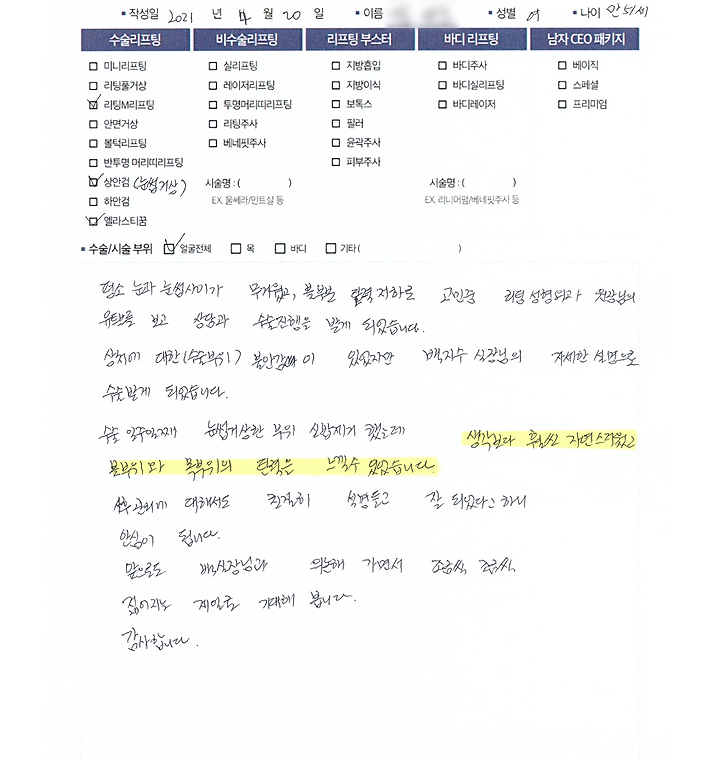 ▪ 작성일 2021 년 4 월 20 일 ▪ 이름 ▪ 성별 여 ▪ 나이 만51세
수술리프팅 비수술리프팅 리프팅 부스터 바디 리프팅 남자 CEO 패키지
미니리프팅 실리프팅 지방흡입 바디주사 베이직
리팅풀거상 레이저리프팅 지방이식 바디실리프팅 스페셜
리팅M리프팅 투명머리띠리프팅 보톡스 바디레이저 프리미엄
안면거상 리팅주사 필러
볼턱리프팅 베네핏주사 윤곽주사
반투명 머리띠리프팅 피부주사
상안검 (눈썹거상) 시술명 : ( ) 시술명 : ( )
하안검 EX. 울쎄라/민트실 등 EX. 리니어펌/베네핏주사 등
엘라스티꿈
▪ 수술/시술 부위 얼굴전체 목 바디 기타 ( )
평소 눈과 눈썹사이가 무거웠고, 볼부분 탄력 저하로 고민중 리팅성형외과 원장님의
유튜브를 보고 상담과 수술진행을 받게 되었습니다.
상처에 대한(수술부위) 불안감이 있었지만 백지수 실장님의 자세한 설명으로
수술받게 되었습니다.
수술 일주일째 눈썹거상한 부위 실밥제거 했는데 생각보다 훨씬 자연스러웠고
볼부위와 목부위의 탄력을 느낄수 있었습니다.
관리에 대해서도 친절히 설명듣고 잘 되었다고 하니
안심이 됩니다.
앞으로도 백실장님과 의논해 가면서 조금씩, 조금씩,
젊어지는 제얼굴 기대해 봅니다.
감사합니다.